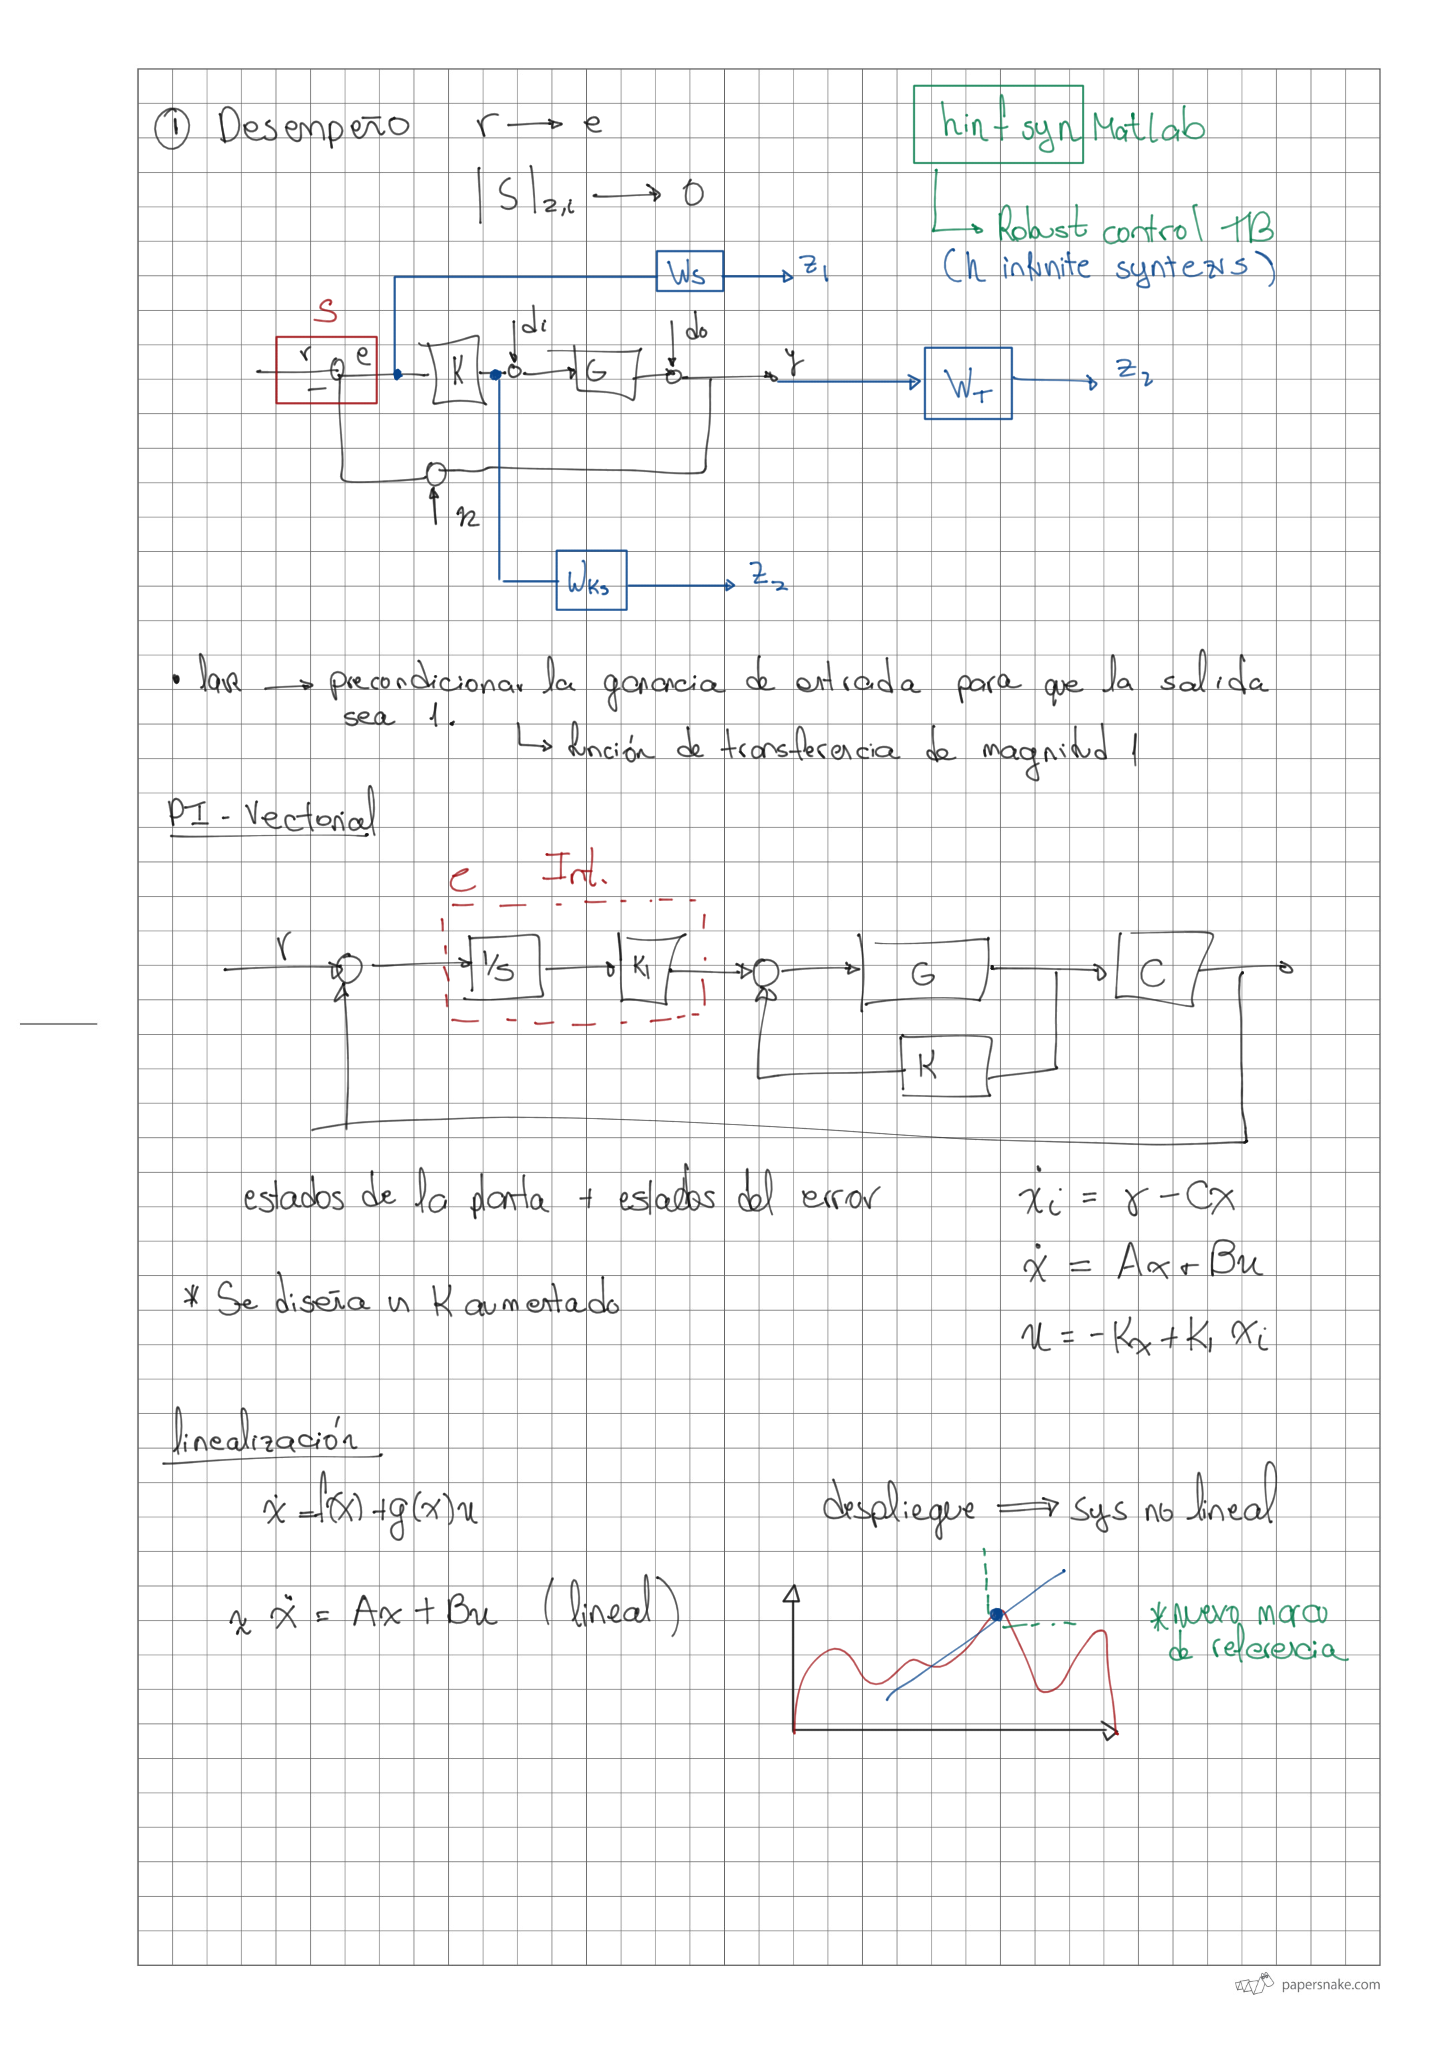 ① Desempeño r → e
hinfsyn Matlab
|S|₂,ᵢ → 0
↳ Robust control TB
(h infinite syntezis)
Ws z₁
S
r e K di G do y W_T z₂
−
n
W_KS z₂
→ precondicionar la ganancia de entrada para que la salida
sea 1.
↳ función de transferencia de magnitud 1
PI - Vectorial
e Int.
r 1/s K₁ G C
K
estados de la planta + estados del error
ẋᵢ = r − Cx
ẋ = Ax + Bu
* Se diseña un K aumentado
u = −Kx + K₁ xᵢ
linealización
ẋ = f(x) + g(x)u
despliegue ⟹ sys no lineal
ẋ = Ax + Bu (lineal)
* nuevo marco
de referencia
papersnake.com